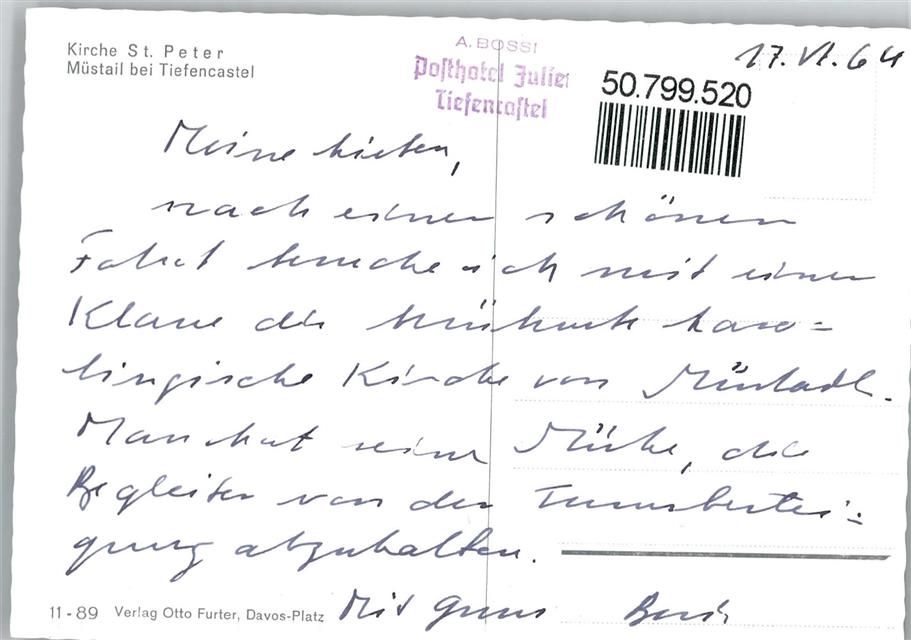 Kirche St. Peter
Müstail bei Tiefencastel
A. BOSSI
Posthotel Julier
Tiefencastel
17. VI. 64
50.799.520
Meine Lieben,
nach einer schönen
Fahrt besuche ich mit einer
Klasse die berühmte karo=
lingische Kirche von Müstail.
Man hat seine Mühe, die
Begleiter von der Turmbestei-
gung abzuhalten.
Mit Gruss
11-89 Verlag Otto Furter, Davos-Platz